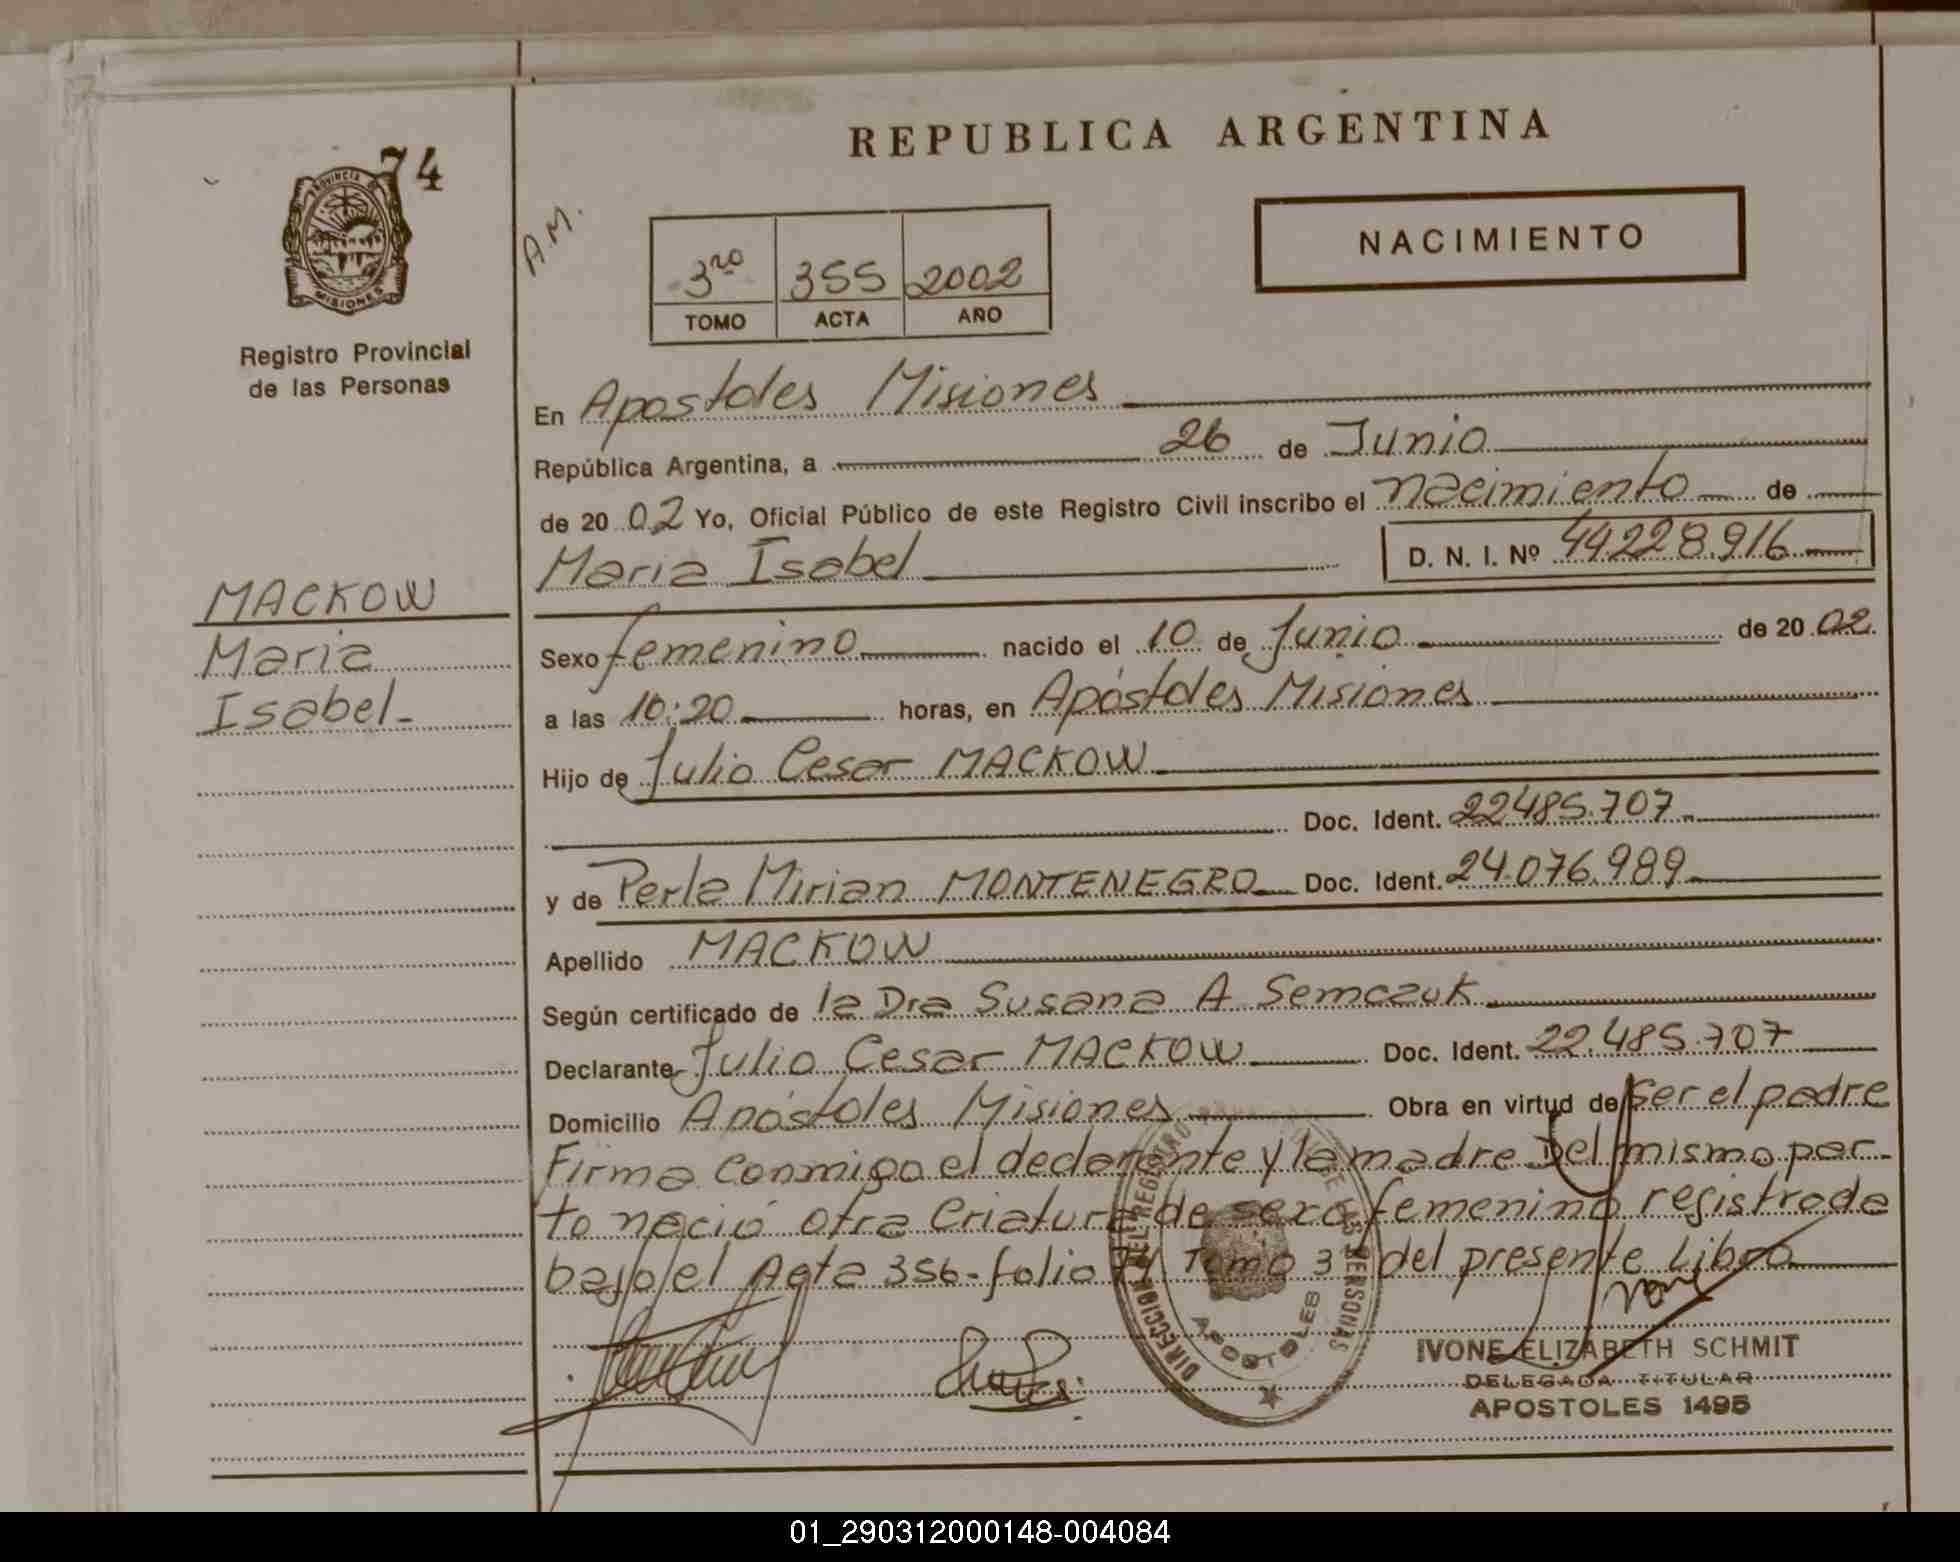 74
PROVINCIA DE
MISIONES
Registro Provincial
de las Personas
MACKOW
Maria
Isabel-
REPUBLICA ARGENTINA
A.M.
NACIMIENTO
3ro 355 2002
TOMO ACTA AÑO
En Apostoles Misiones
República Argentina, a 26 de Junio
de 20 02 Yo, Oficial Público de este Registro Civil inscribo el nacimiento de
Maria Isabel D. N. I. Nº 44.228.916
Sexo femenino nacido el 10 de Junio de 20 02.
a las 10:20 horas, en Apóstoles Misiones
Hijo de Julio Cesar MACKOW
Doc. Ident. 22485.707
y de Perla Mirian MONTENEGRO Doc. Ident. 24.076.989
Apellido MACKOW
Según certificado de la Dra Susana A Semczuk
Declarante Julio Cesar MACKOW Doc. Ident. 22.485.707
Domicilio Apóstoles Misiones Obra en virtud de ser el padre
Firma conmigo el declarante y la madre Del mismo par-
to nació otra criatura de sexo femenino registrada
bajo el Acta 356-folio 74 Tomo 3º del presente Libro
DIRECCION DEL REGISTRO DE LAS PERSONAS
APOSTOLES
IVONE ELIZABETH SCHMIT
DELEGADA TITULAR
APOSTOLES 1495
01_290312000148-004084